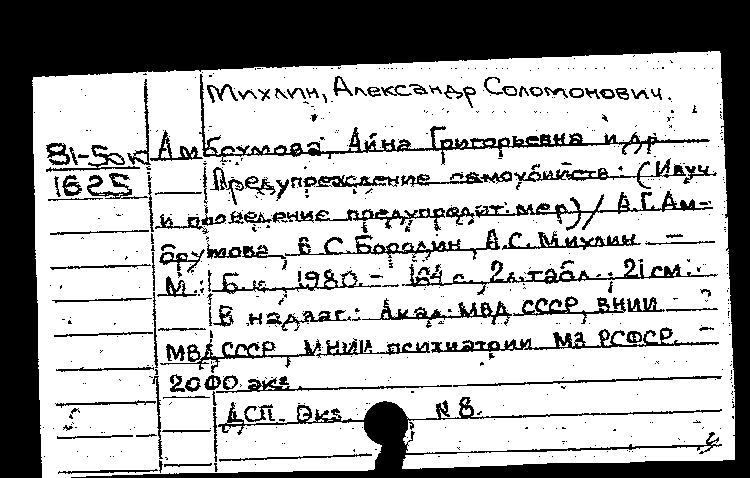 Михлин, Александр Соломонович.
81-50к Амбрумова, Айна Григорьевна и др
1625 Предупреждение самоубийств: (Изуч.
и проведение предупредит. мер) / А.Г. Ам-
брумова, В С. Бородин, А.С. Михлин. —
М.: Б. и., 1980. – 164 с., 2 л. табл.; 21 см. –
В надзаг.: Акад. МВД СССР, ВНИИ
МВД СССР, МНИИ психиатрии МЗ РСФСР. –
2000 экз.
ДСП. Экз. N 8.